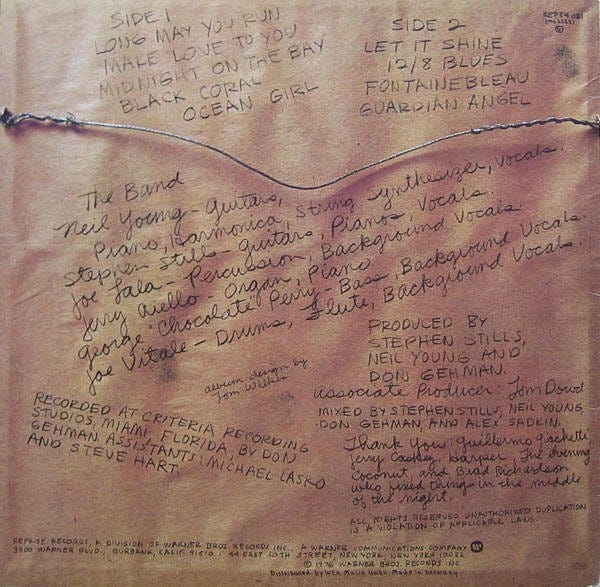 SIDE 1
LONG MAY YOU RUN
MAKE LOVE TO YOU
MIDNIGHT ON THE BAY
BLACK CORAL
OCEAN GIRL
SIDE 2
LET IT SHINE
12/8 BLUES
FONTAINEBLEAU
GUARDIAN ANGEL
REP 54 081
The Band
Neil Young - Guitars,
Piano, Harmonica, String Synthesizer, Vocals.
Stephen Stills - Guitars, Pianos, Vocals.
Joe Lala - Percussion, Background Vocals.
Jerry Aiello - Organ, Piano
George "Chocolate" Perry - Bass, Background Vocals.
Joe Vitale - Drums, Flute, Background Vocals.
album design by
Tom Wilkes
PRODUCED BY
STEPHEN STILLS,
NEIL YOUNG AND
DON GEHMAN.
Associate Producer: Tom Dowd
MIXED BY STEPHEN STILLS, NEIL YOUNG,
DON GEHMAN, AND ALEX SADKIN.
RECORDED AT CRITERIA RECORDING
STUDIOS, MIAMI, FLORIDA, BY DON
GEHMAN ASSISTANTS: MICHAEL LASKO
AND STEVE HART.
Thank You: Guillermo Giachetti,
Jerry Harper, The Evening
Coconut, and Brad Richardson
who fixed things in the middle
of the night.
ALL RIGHTS RESERVED. UNAUTHORIZED DUPLICATION
IS A VIOLATION OF APPLICABLE LAWS.
REPRISE RECORDS, A DIVISION OF WARNER BROS. RECORDS INC., A WARNER COMMUNICATIONS COMPANY
3300 WARNER BLVD., BURBANK, CALIF. 91510 · 44 EAST 50TH STREET, NEW YORK, NEW YORK 10022
© 1976 WARNER BROS. RECORDS INC.
Distributed by WEA Musik GmbH · Made in Germany